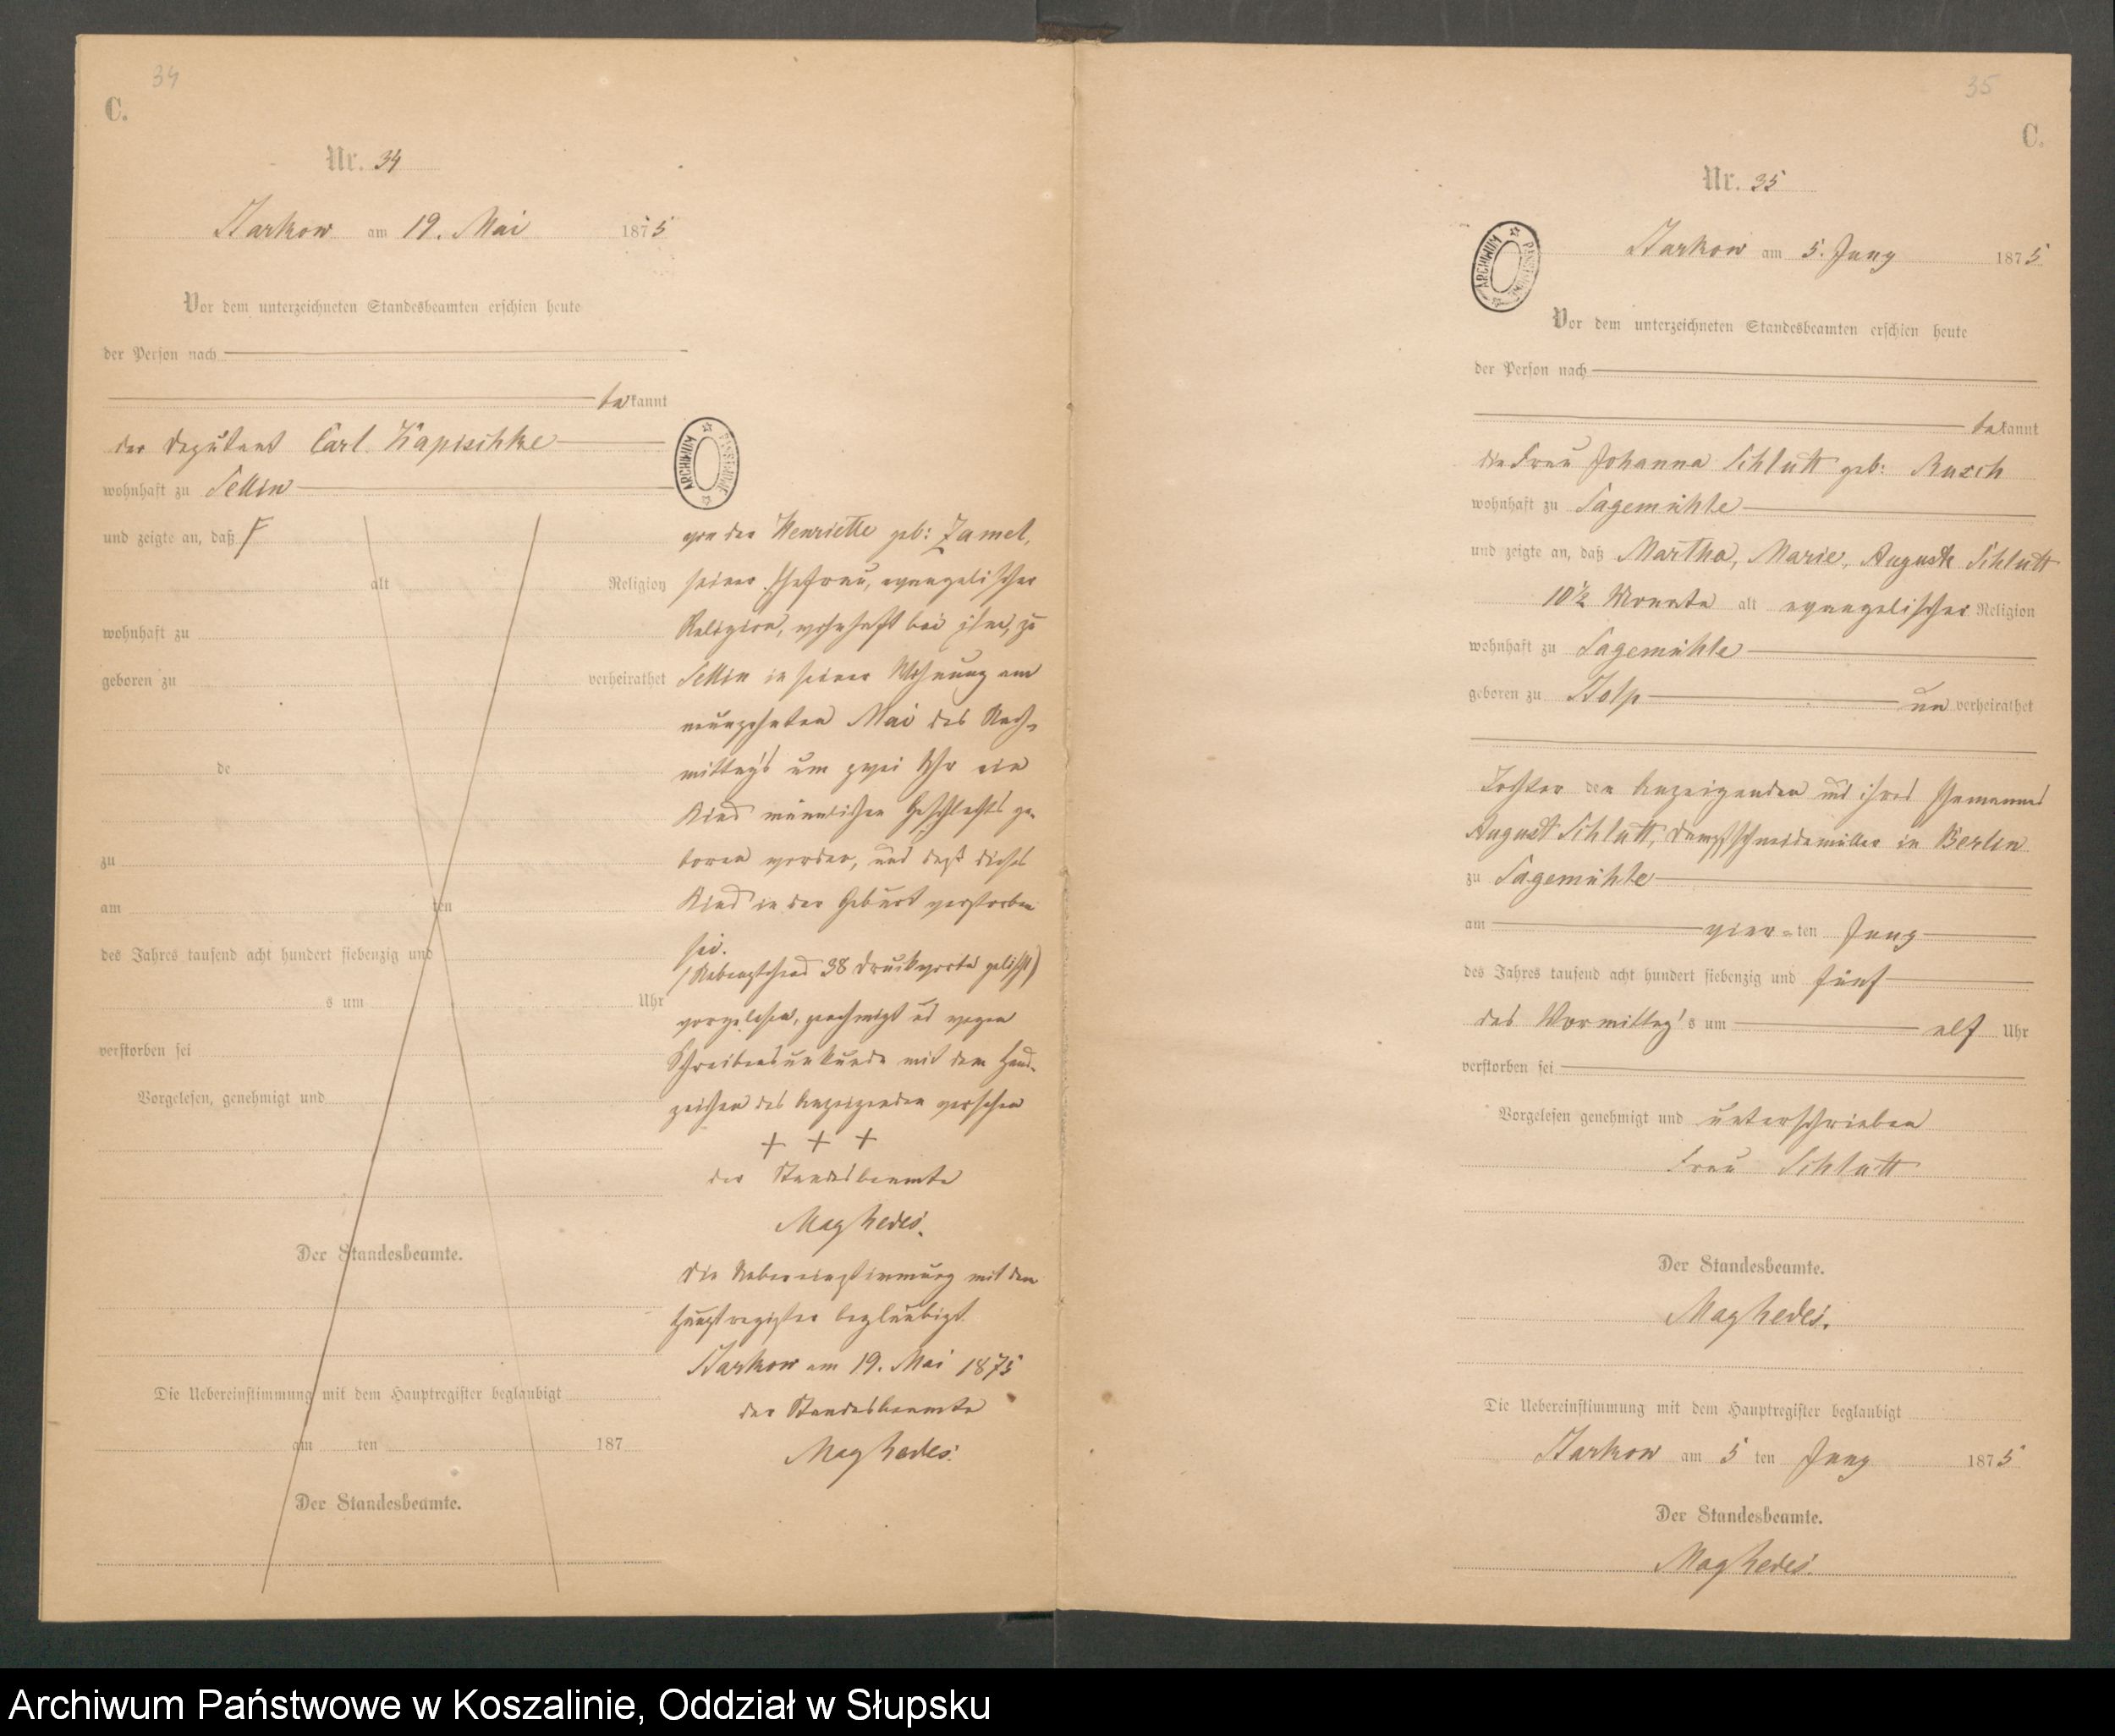 34
C.
Nr. 34
Starkow am 19. Mai 1875
Vor dem unterzeichneten Standesbeamten erschien heute
der Person nach
bekannt
der Deputant Carl Kapischke
wohnhaft zu Sellin
und zeigte an, daß
alt Religion
wohnhaft zu
geboren zu verheirathet
de
zu
am ten
des Jahres tausend acht hundert siebenzig und
s um Uhr
verstorben sei
Vorgelesen, genehmigt und
Der Standesbeamte.
Die Uebereinstimmung mit dem Hauptregister beglaubigt
am ten 187
Der Standesbeamte.
ARCHIWUM PAŃSTWOWE
von der Henriette geb: Zamel,
seiner Ehefrau, evangelischer
Religion, wohnhaft bei ihm, zu
Sellin in seiner Wohnung am
neunzehnten Mai des Nach-
mittags um zwei Uhr ein
Kind männlichen Geschlechts ge-
boren worden, und daß dieses
Kind in der Geburt verstorben
sei.
(Nebenstehend 38 Druckworte gelöscht)
vorgelesen, genehmigt und wegen
Schreibensunkunde mit dem Hand-
zeichen des Anzeigenden versehen
+ + +
der Standesbeamte
Die Uebereinstimmung mit dem
Hauptregister beglaubigt
Starkow am 19. Mai 1875
der Standesbeamte
35
C.
Nr. 35
ARCHIWUM PAŃSTWOWE
Starkow am 5. Juny 1875
Vor dem unterzeichneten Standesbeamten erschien heute
der Person nach
bekannt
die Frau Johanna Schlutt geb: Rusch
wohnhaft zu Sagemühle
und zeigte an, daß Martha, Marie, Auguste Schlutt
10½ Monate alt evangelischer Religion
wohnhaft zu Sagemühle
geboren zu Stolp unverheirathet
Tochter der Anzeigenden und ihres Ehemannes
August Schlutt, Dampfschneidemüller in Berlin
zu Sagemühle
am vier-ten Juny
des Jahres tausend acht hundert siebenzig und fünf
des Vormittag's um elf Uhr
verstorben sei
Vorgelesen genehmigt und unterschrieben
Frau Schlutt
Der Standesbeamte.
Die Uebereinstimmung mit dem Hauptregister beglaubigt
Starkow am 5 ten Juny 1875
Der Standesbeamte.
Archiwum Państwowe w Koszalinie, Oddział w Słupsku